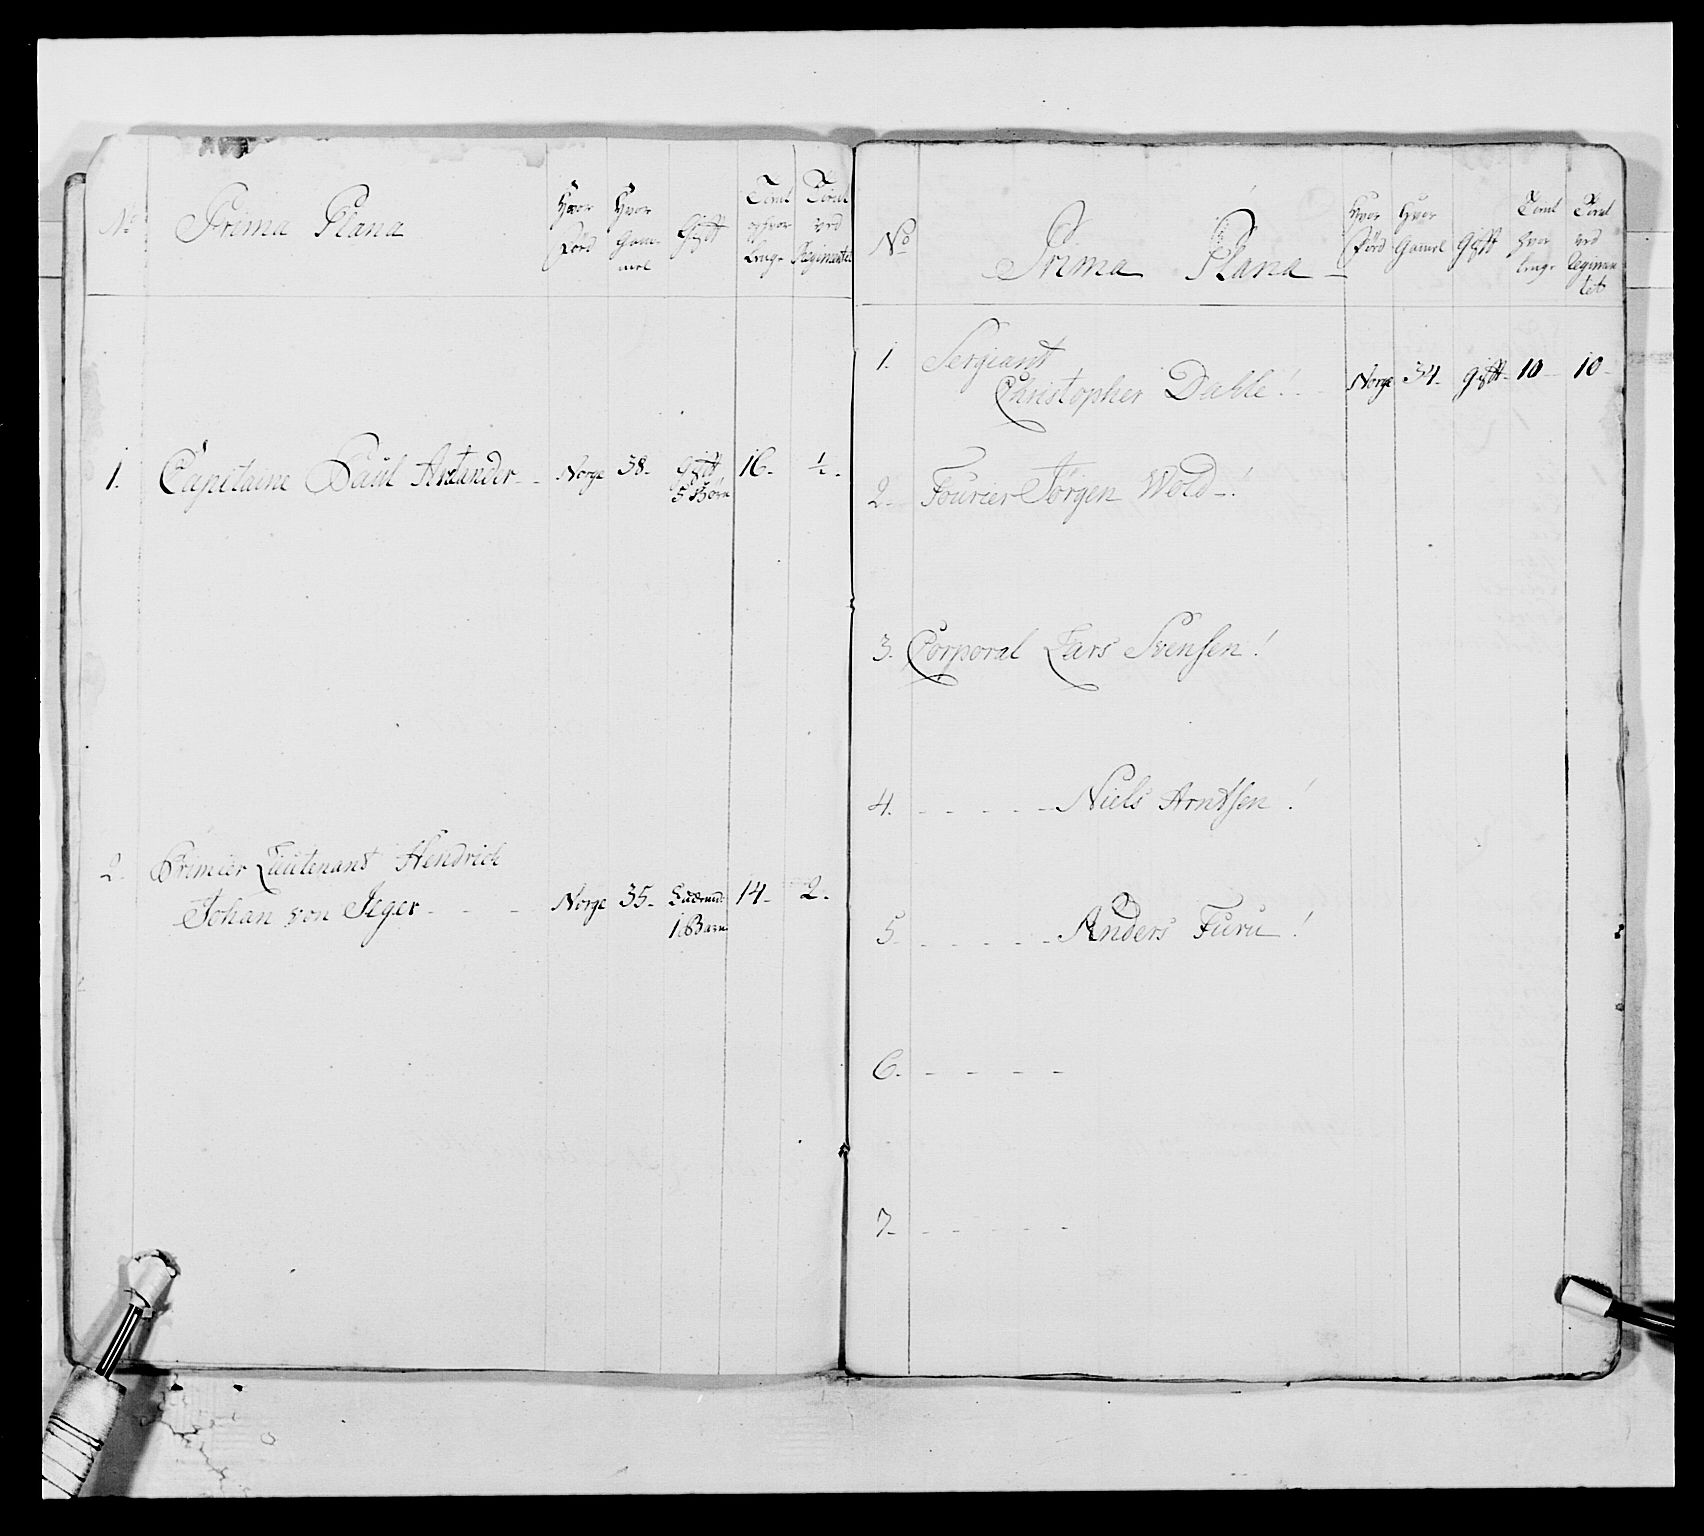 No
Prima Plana
Hvor
Förd
Hvor
Gam-
mel
Gift
Tient
ophvor
leng-
Tient
ved
Regimentet
1. Capitaine Paul Arxander - - Norge 38- Gift 16- ½-
5 Börn
2. Premier Lieutenant Hendrich
Johan von Jeger - - - Norge 35- 14- 2-
1 Barn
No
Prima Plana
Hvor
Förd
Hvor
Gamel
Gift
Tient
hvor
leng-
Tient
ved
Regimen
tet
1. Sergeant
Christopher Dahle! - Norge 34- Gift- 10- 10-
2- Fourier Jörgen Wold-!
3. Corporal Lars Svensen!
4. - - - - - Niels Arntsen!
5. - - - - - Anders Furu!
6. - - - -
7. - - - - -